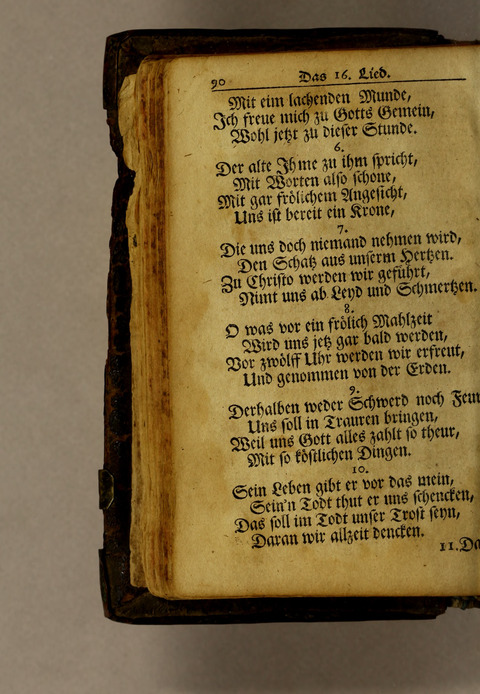 90 Das 16. Lied.
Mit eim lachenden Munde,
Ich freue mich zu Gotts Gemein,
Wohl jetzt zu dieser Stunde.
6.
Der alte Ihme zu ihm spricht,
Mit Worten also schone,
Mit gar frölichem Angesicht,
Uns ist bereit ein Krone,
7.
Die uns doch niemand nehmen wird,
Den Schatz aus unserm Hertzen.
Zu Christo werden wir geführt,
Nimt uns ab Leyd und Schmertzen.
8.
O was vor ein frölich Mahlzeit
Wird uns jetz gar bald werden,
Vor zwölff Uhr werden wir erfreut,
Und genommen von der Erden.
9.
Derhalben weder Schwerd noch Feur
Uns soll in Trauren bringen,
Weil uns Gott alles zahlt so theur,
Mit so köstlichen Dingen.
10.
Sein Leben gibt er vor das mein,
Sein'n Todt thut er uns schencken,
Das soll im Todt unser Trost seyn,
Daran wir allzeit dencken.
11. Da